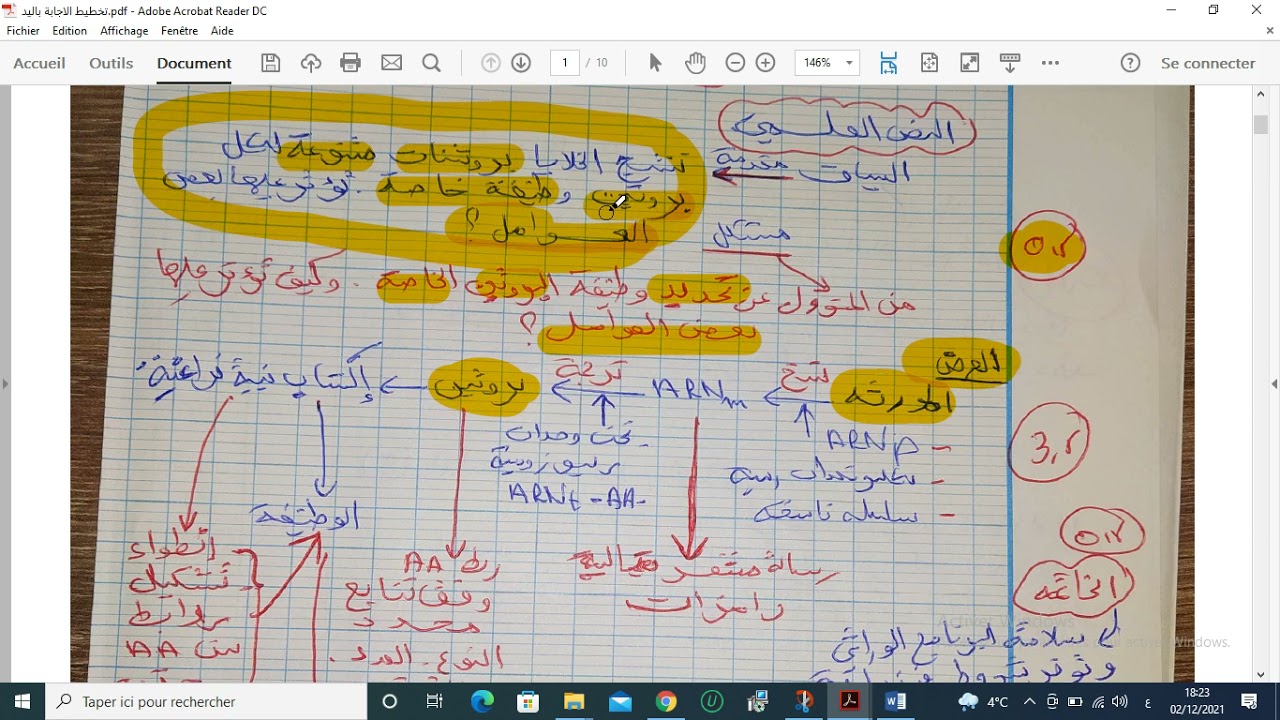 تخطيط الاجابة باليد.pdf - Adobe Acrobat Reader DC
Fichier Edition Affichage Fenêtre Aide
Accueil Outils Document 1 / 10 146% Se connecter
النص العلمي
السياق مقدمة
تنتج الخلايا بروتينات متنوعة لكل
بروتين وظيفة خاصة. تؤثر عليها بعض
العوامل؟
مشكل
من المسؤول عن تحديد وظيفة البروتين الخاصة. وكيف تؤثر عليها
بعض العوامل؟
0,5
العرض
المورثة نسخ ARNm ترجمة بروتين إكتساب بنية فراغية
3,5
- ARNp
- نكليوتيدات ريبية
- سلسلة ناسخة
تحت وحدات
ريبوزومية
ARNt - AA -
الوظيفة
رسالة مشفرة
رامزات
ربط AA
وفق تتابع
محدد
نوع. العدد.
إنطواء
تشكل
روابط
بين AA
0,5
الخاتمة
سلامة البرنامج الوراثي
Windows.
Taper ici pour rechercher
4°C
ع
18:23
02/12/2021